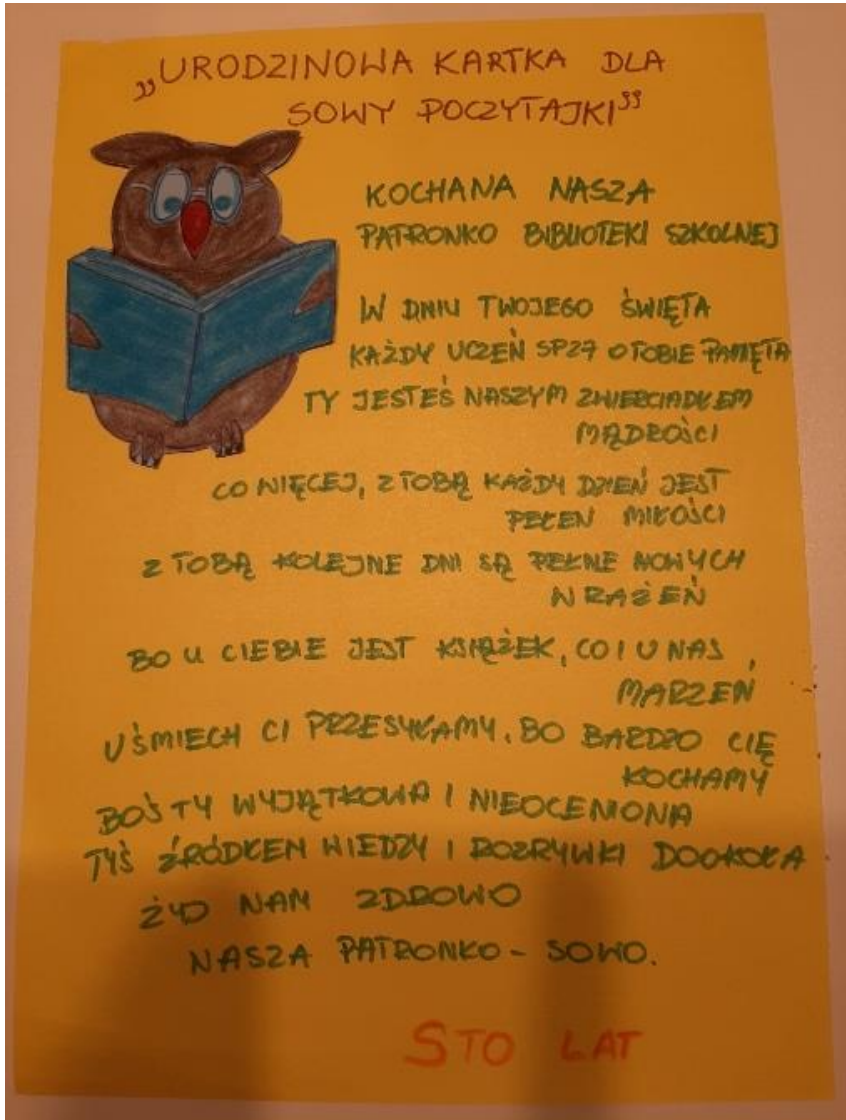 „URODZINOWA KARTKA DLA
SOWY POCZYTAJKI”
KOCHANA NASZA
PATRONKO BIBLIOTEKI SZKOLNEJ
W DNIU TWOJEGO ŚWIĘTA
KAŻDY UCZEŃ SP27 O TOBIE PAMIĘTA
TY JESTEŚ NASZYM ZWIERCIADŁEM
MĄDROŚCI
CO WIĘCEJ, Z TOBĄ KAŻDY DZIEŃ JEST
PEŁEN MIŁOŚCI
Z TOBĄ KOLEJNE DNI SĄ PEŁNE NOWYCH
WRAŻEŃ
BO U CIEBIE JEST KSIĄŻEK, CO I U NAS,
MARZEŃ
UŚMIECH CI PRZESYŁAMY, BO BARDZO CIĘ
KOCHAMY
BOŚ TY WYJĄTKOWA I NIEOCENIONA
TYŚ ŹRÓDŁEM WIEDZY I ROZRYWKI DOOKOŁA
ŻYJ NAM ZDROWO
NASZA PATRONKO - SOWO.
STO LAT